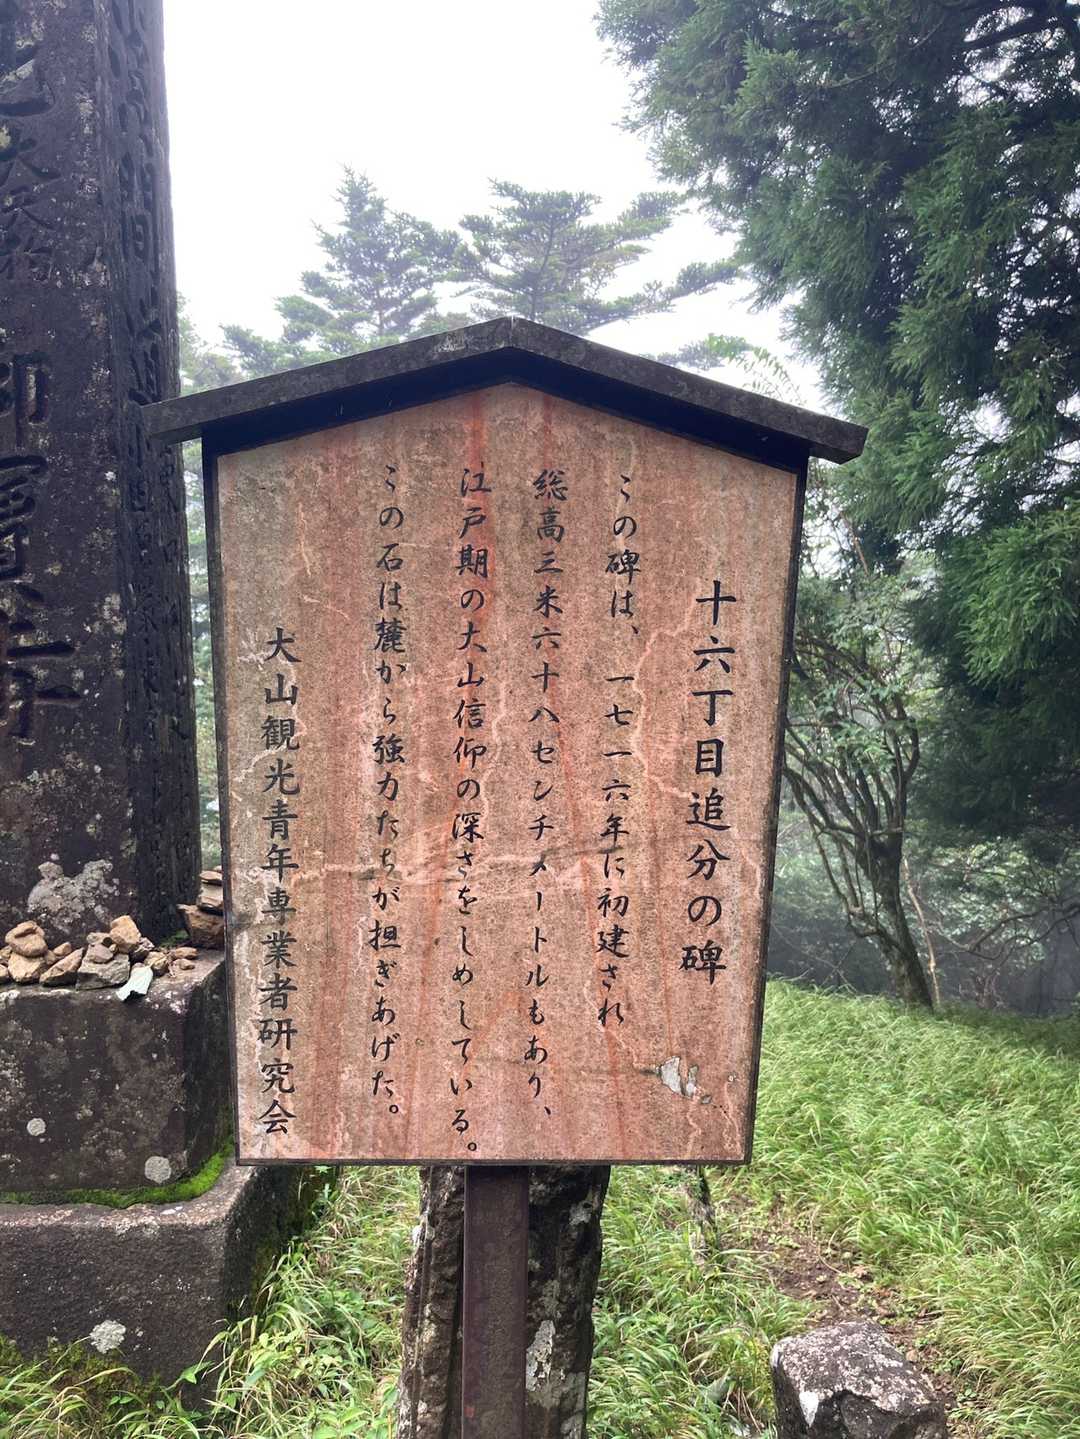 十六丁目追分の碑
この碑は、一七一六年に初建され
総高三米六十八センチメートルもあり、
江戸期の大山信仰の深さをしめしている。
この石は麓から強力たちが担ぎあげた。
大山観光青年専業者研究会